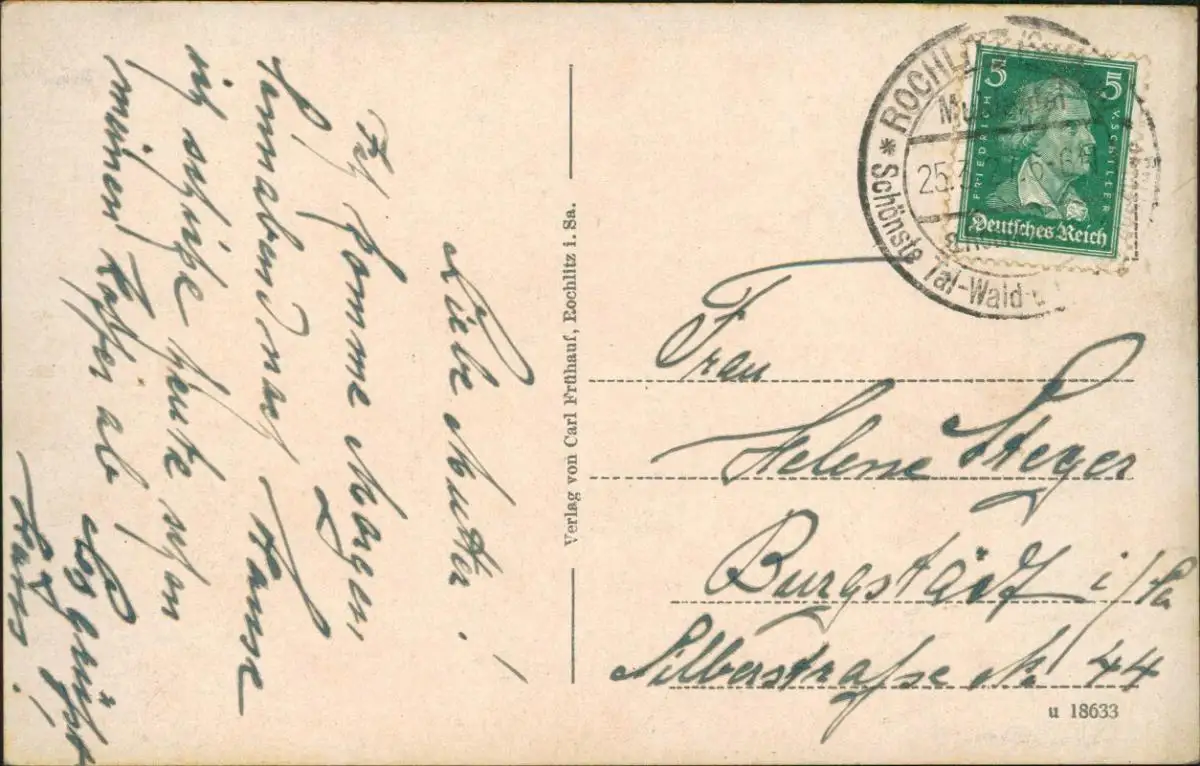 Liebe Mutter!
Ich komme Morgen,
Sonnabend nach Hause
ich schicke heute schon
meinen Koffer ab
Es grüßt
Hans!
Verlag von Carl Frühauf, Rochlitz i. Sa.
* ROCHLITZ
25.3.
Schönste Tal-Wald-
5 5
FRIEDRICH V. SCHILLER
Deutsches Reich
Frau
Helene Steger
Burgstädt i/Sa
Silberstraße No 44
u 18633